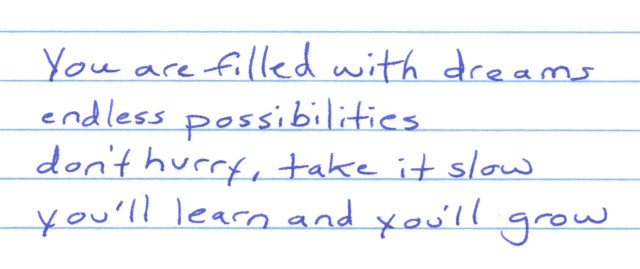 You are filled with dreams
endless possibilities
don't hurry, take it slow
you'll learn and you'll grow